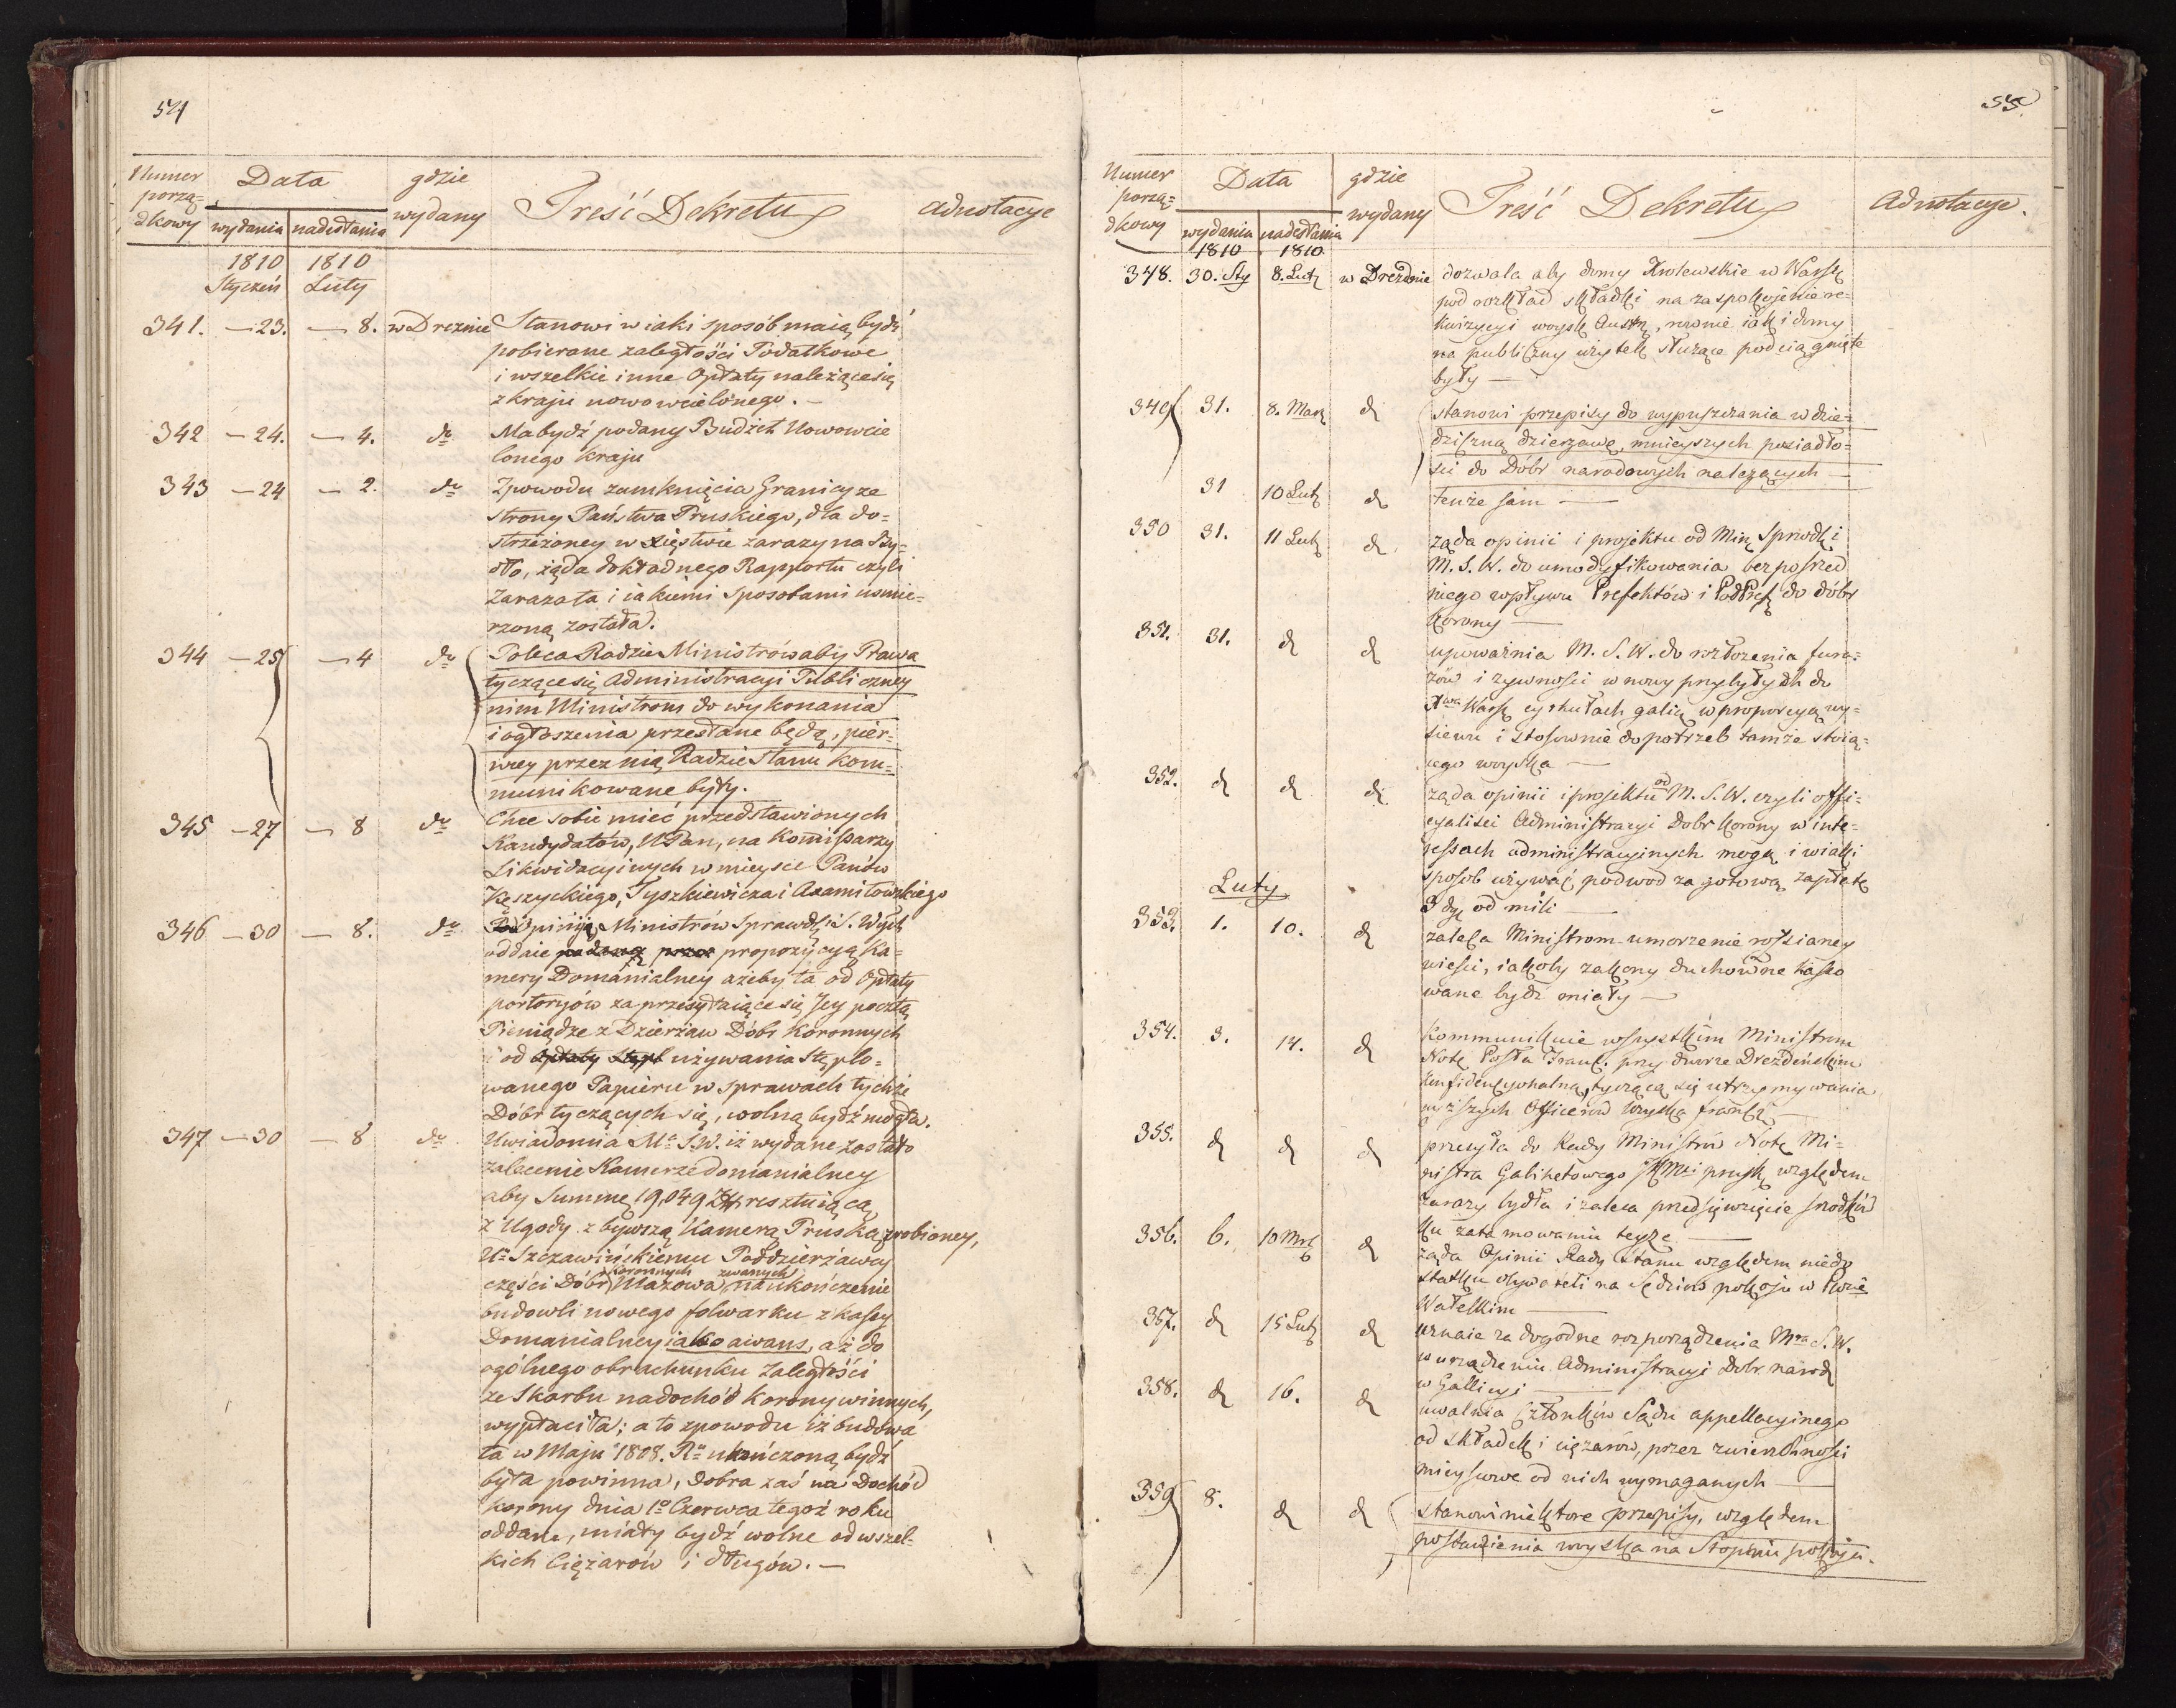 54
Numer porzą=dkowy
Data
wydania nadesłania
gdzie wydany
Treść Dekretu
Adnotacye
1810 1810
Styczeń Luty
341. — 23. — 8. w Dreznie Stanowi w iaki sposób maią bydź
pobierane zaległości Podatkowe
i wszelkie inne Opłaty należące się
z kraju nowowcielonego. —
342 — 24. — 4. do Ma bydź podany Budżet Nowowcie
lonego kraju
343 — 24 — 2. do Zpowodu zamknięcia Granicy ze
strony Państwa Pruskiego, dla do=
strzeżoney w Xięstwie zarazy na By=
dło, żąda dokładnego Rapportu czyli
Zaraza ta i iakiemi sposobami usmie=
rzoną została.
344 — 25 — 4 do Poleca Radzie Ministrów aby Prawa
tyczące się Administracyi Publiczney
nim Ministrom do wykonania
i ogłoszenia przesłane będą, pier=
wey przez nią Radzie Stanu kom=
munikowane były.
345 — 27 — 8 do Chce sobie mieć przedstawionych
Kandydatów, na Kommissarzy
Likwidacyinych w mieysce Panów
Kęszyckiego, Tyszkiewicza i Axamitowskiego
346 — 30 — 8. do Opinij Ministrów Sprawdli S. Wych
oddaie podaną przez propozycyą Ka=
mery Domanialney ażeby ta od Opłaty
portoryów za przesyłaiące się Jey pocztą
Pieniądze z Dzierżaw Dóbr Koronnych
i od opłaty stępl używania Stęplo=
wanego Papieru w sprawach tychże
Dóbr tyczących się, wolną bydź mogła.
347 — 30 — 8 do Uwiadomia Ma S.W. iż wydane zostało
zalecenie Kamerze domanialney
aby Summę 19,049 resztuiącą
z Ugody z bywszą Kamerą Pruską zrobioney,
Szczawińskiemu Poddzierżawcy
części Dóbr Koronnych Mazowa zwanych, na ukończenie
budowli nowego folwarku z kassy
Domanialney iako awans, aż do
ogólnego obrachunku zaległości
ze Skarbu na dochód Korony winnych,
wypłaciła; a to zpowodu iż budowa
ta w Maju 1808. Ru ukończoną bydź
była powinna, dobra zaś na Dochód
Korony dnia 1o Czerwca tegoż roku
oddane, miały bydź wolne od wszel=
kich Ciężarów i długów. —
55.
Numer porzą=dkowy
Data
wydania nadesłania
gdzie wydany
Treść Dekretu
Adnotacye.
1810 1810
348. 30. Sty 8. Lut w Dreźdnie dozwala aby domy Krolewskie w Warsz
pod rozkład składki na zaspokojenie re=
kwizycyi woysk Austr, rownie iak i domy
na publiczny użytek służące podciągnięte
były —
349 31. 8. Marz d stanowi przepisy do wypuszczania w dzie=
dziczną dzierżawę, mnieyszych posiadło=
sci do Dóbr narodowych należących —
31 10 Lut d tenże sam —
350 31. 11 Lut d żąda opinii i projektu od Min Sprwdl i
M. S. W. do umodyfikowania bezposred
niego wpływu Prefektów i PodPref do dóbr
Korony —
351. 31. d d upoważnia M. S. W. do rozłożenia fura=
żów i żywności w nowy przybyłych do
Xwa Warsz cyrkułach galic w proporcyą wy=
siewu i stosownie do potrzeb tamże stoią=
cego woyska —
352. d d d żąda opinii i projektu od M. S. W. czyli offi=
cyaliści Administracyi Dobr Korony w inte=
ressach administracyinych mogą i w iaki
sposob używać podwod za gotową zapłatę
3 od mili —
Luty
353. 1. 10. d zaleca Ministrom umorzenie rozsianey
wieści, iakoby zakony duchowne kasso
wane bydź miały —
354. 3. 14. d kommunikuie wszystkim Ministrom
Notę Posła Franc. przy dworze Drezdeńskim
konfidencyonalną, tyczącą się utrzymywania
wyższych Officerów Woyska franc —
355. d d d przesyła do Rady Ministrów Notę Mi=
nistra Gabinetowego prusk względem
zarazy bydła i zaleca przedsięwzięcie srodków
ku zatamowaniu teyże —
356. 6. 10 Mrc d żąda Opinii Rady Stanu względem niedo
statku obywateli na Sędziow pokoju w Pwcie
Wałeckim —
357. d 15 Lut d uznaie za dogodne rozporządzenia Mra S. W.
w urządzeniu Administracyi Dobr narod
w Gallicyi —
358. d 16. d uwalnia Członków Sądu appellacyinego
od składek i ciężarów, przez zwierzchności
mieyscowe od nich wymaganych —
359 8. d d stanowi niektore przepisy, względem
postawienia woyska na Stopniu pokoju.